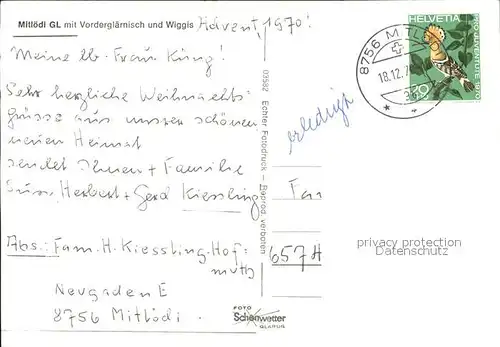 Mitlödi GL mit Vorderglärnisch und Wiggis
Advent, 1970!
Meine lb. Frau Küng!
Sehr herzliche Weihnachts-
grüsse aus unserer schönen,
neuen Heimat
sendet Ihnen + Familie
Herbert + Gerd Kiessling
Abs.: Fam. H. Kiessling-Hof-
muth
Neugaden E
8756 Mitlödi.
03582 Echter Fotodruck — Reprod. verboten
FOTO
Schönwetter
GLARUS
erledigt
8756 MITLÖDI
18.12.7
HELVETIA
PRO JUVENTUTE 1970
20
Fam
657H
privacy protection
Datenschutz